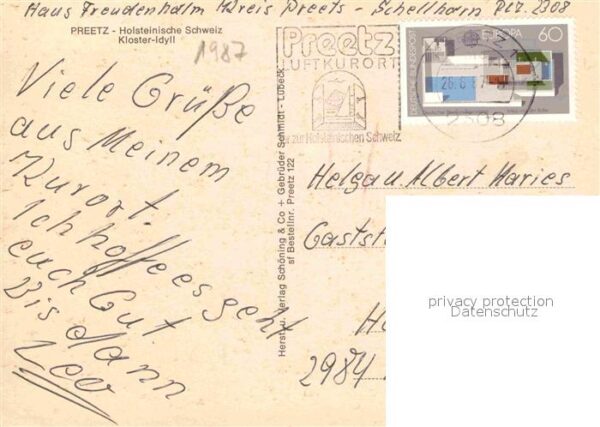 Haus Freudenholm Kreis Preets - Schellhorn Plz. 2308
PREETZ - Holsteinische Schweiz
Kloster-Idyll
1987
Viele Grüße
aus Meinem
Kurort.
Ich hoffe es geht
euch Gut
Bis dann
Leo
Herst. u. Verlag Schöning & Co + Gebrüder Schmidt - Lübeck
sf Bestellnr. Preetz 122
Preetz
LUFTKURORT
zur Holsteinischen Schweiz
2308
DEUTSCHE BUNDESPOST
EUROPA 60
Helga u. Albert Haries
Gastst
2984
privacy protection
Datenschutz